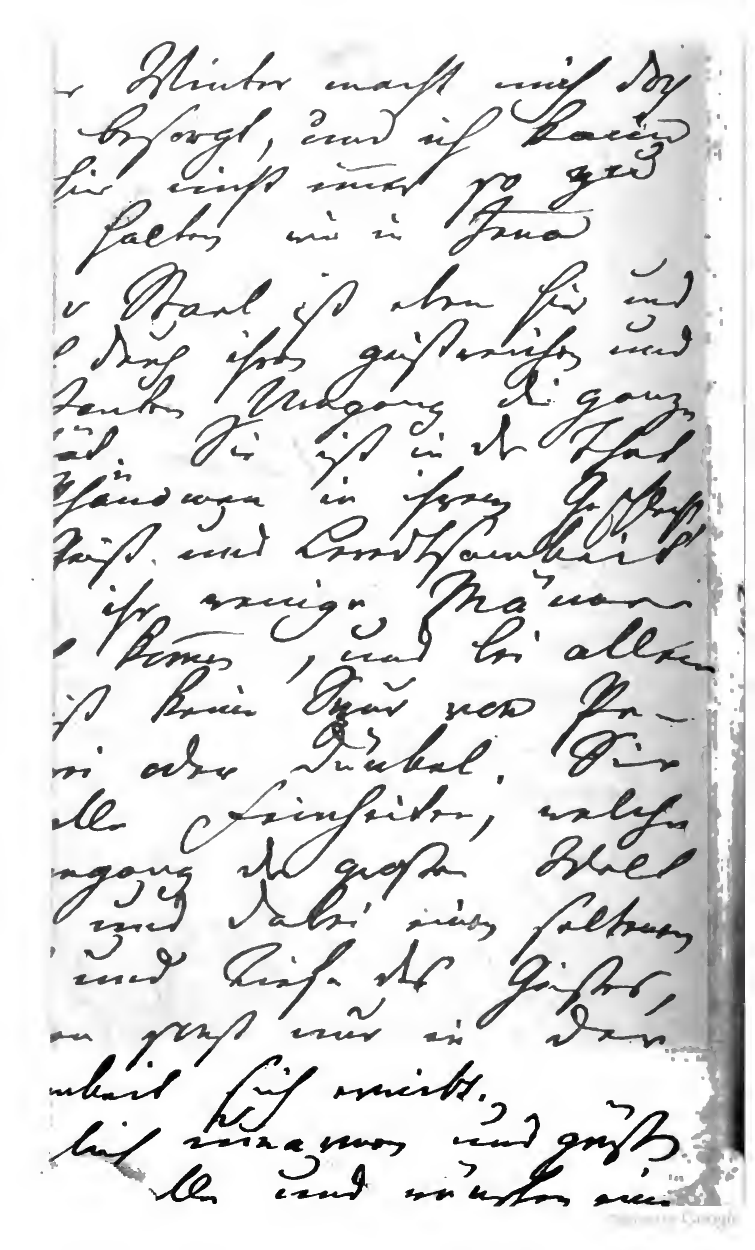 r Winter macht mich doch
besorgt, und ich kann
hier nicht immer so gut
halten wie in Jena
v Stael ist eben hier und
durch ihren geistreichen und
santen Umgang die ganze
tät. Sie ist in der That
Phänomen in ihrem Geschlecht
Geist und Beredtsamkeit
ihr wenige Männer
kommen, und bei allem
ist keine Spur von Pe-
rei oder Dünkel. Sie
alle Feinheiten, welche
mgang der großen Welt
und dabei einen seltenen
und Tiefe des Geistes,
en sonst nur in der
mkeit sich erwirbt.
lich umarmen und grüßen
lle und wünschen ein